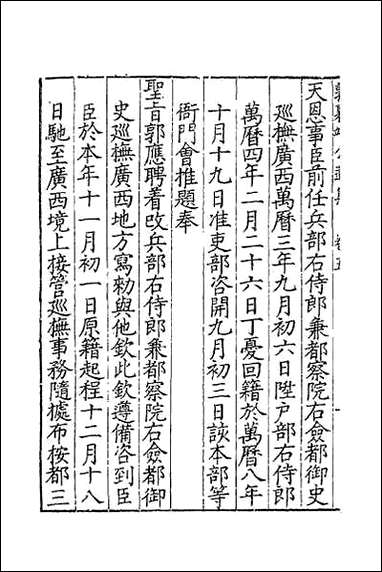 天恩事臣前任兵部右侍郎兼都察院右僉都御史
巡撫廣西萬曆三年九月初六日陞戶部右侍郎
萬曆四年二月二十六日丁憂回籍於萬曆八年
十月十九日准吏部咨開九月初三日該本部等
衙門會推題奉
聖旨郭應聘着改兵部右侍郎兼都察院右僉都御
史巡撫廣西地方寫勅與他欽此欽遵備咨到臣
臣於本年十一月初一日原籍起程十二月十八
日馳至廣西境上接管巡撫事務隨據布按都三